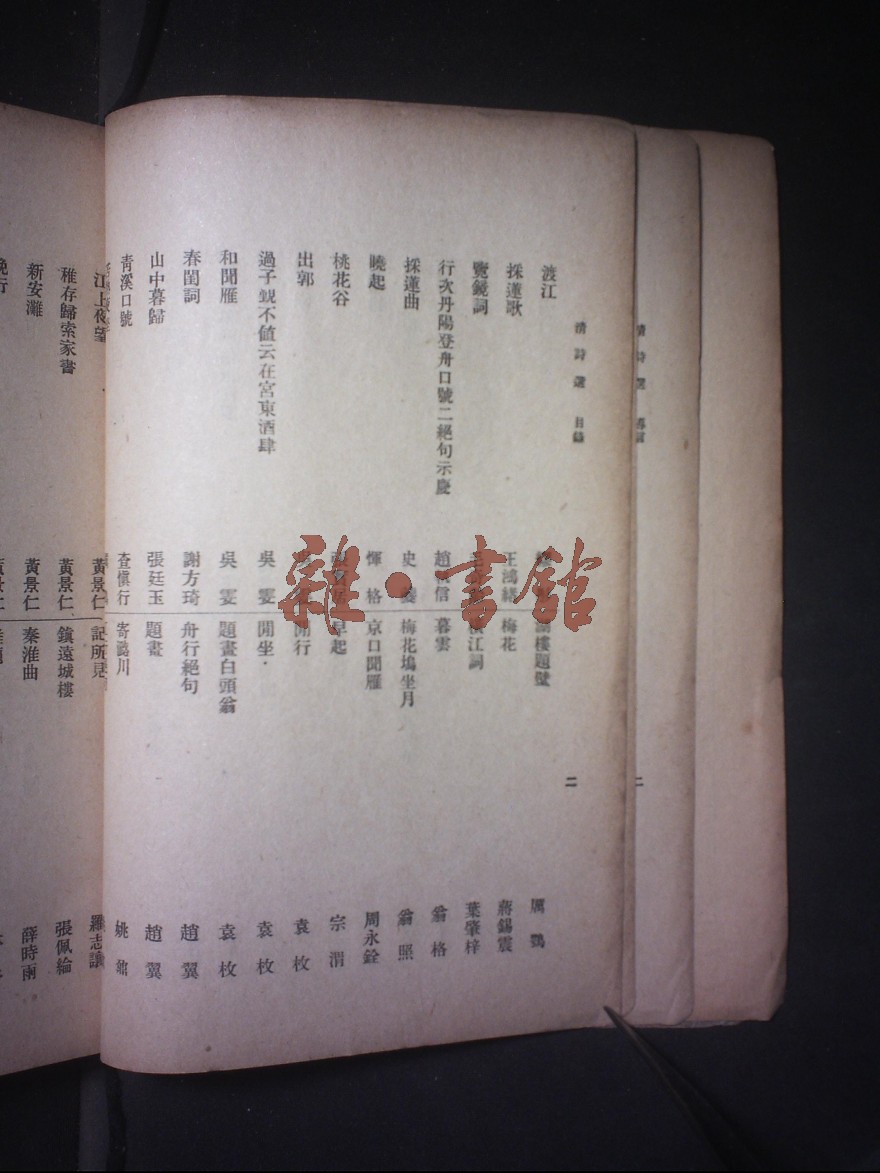 清詩選 目錄 二
渡江
採蓮歌 王鴻緒
覽鏡詞 毛
行次丹陽登舟口號二絕句示慶 趙 信
採蓮曲 史
曉起 惲格
桃花谷
出郭 吳
過子觀不值云在宮東酒肆 吳雯
和聞雁 吳雯
春閨詞 謝方琦
山中暮歸 張廷玉
青溪口號 查慎行
樓題壁 厲鶚
梅花 蔣錫震
江詞 葉肇梓
暮雲 翁格
梅花塢坐月 翁照
京口聞雁 周永銓
早起 宗渭
閒行 袁枚
閒坐 袁枚
題畫白頭翁 袁枚
舟行絕句 趙翼
題畫 趙翼
寄潞川 姚鼐
江上夜望 黃景仁
稚存歸索家書 黃景仁
新安灘 黃景仁
晚行 黃景仁
記所見 羅志讓
鎮遠城樓 張佩綸
秦淮曲 薛時雨
清詩選
二
雜·書館